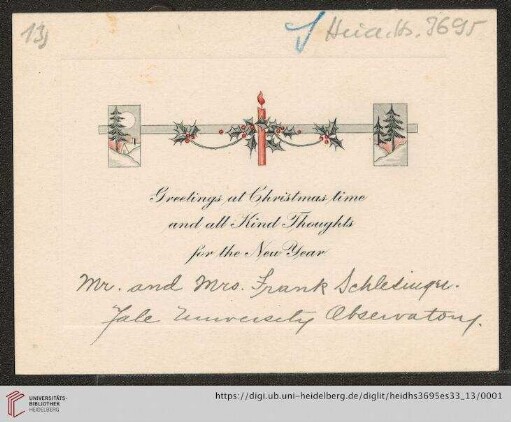 13)
Heid. Hs. 3695
Greetings at Christmas time
and all Kind Thoughts
for the New Year
Mr. and Mrs. Frank Schlesinger.
Yale University Observatory.
UNIVERSITÄTS-
BIBLIOTHEK
HEIDELBERG
https://digi.ub.uni-heidelberg.de/diglit/heidhs3695es33_13/0001